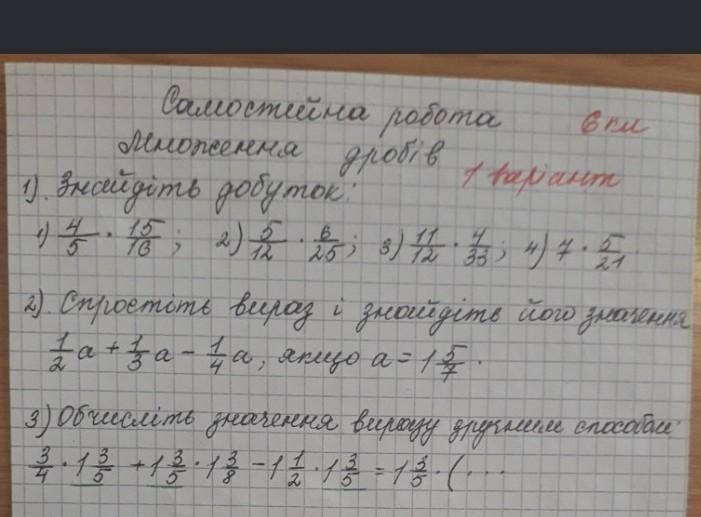 Самостійна робота 6 кл
Множення дробів
1 варіант
1). Знайдіть добуток:
1) 4/5 · 15/16; 2) 5/12 · 6/25; 3) 11/12 · 4/33; 4) 7 · 5/21.
2). Спростіть вираз і знайдіть його значення
1/2 a + 1/3 a - 1/4 a, якщо a = 1 5/7.
3) Обчисліть значення виразу зручним способом:
3/4 · 1 3/5 + 1 3/5 · 1 3/8 - 1 1/2 · 1 3/5 = 1 3/5 · (...